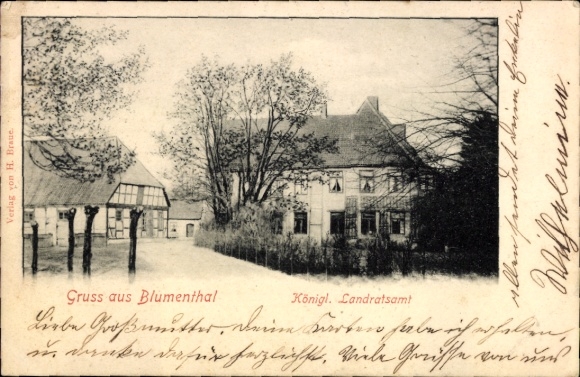 Verlag von H. Braue.
Gruss aus Blumenthal
Königl. Landratsamt
Liebe Großmutter. Deine Karten habe ich erhalten,
u. danke dafür herzlichst. Viele Grüße von uns
allen sendet Deine Enkelin
Wilhelmine.